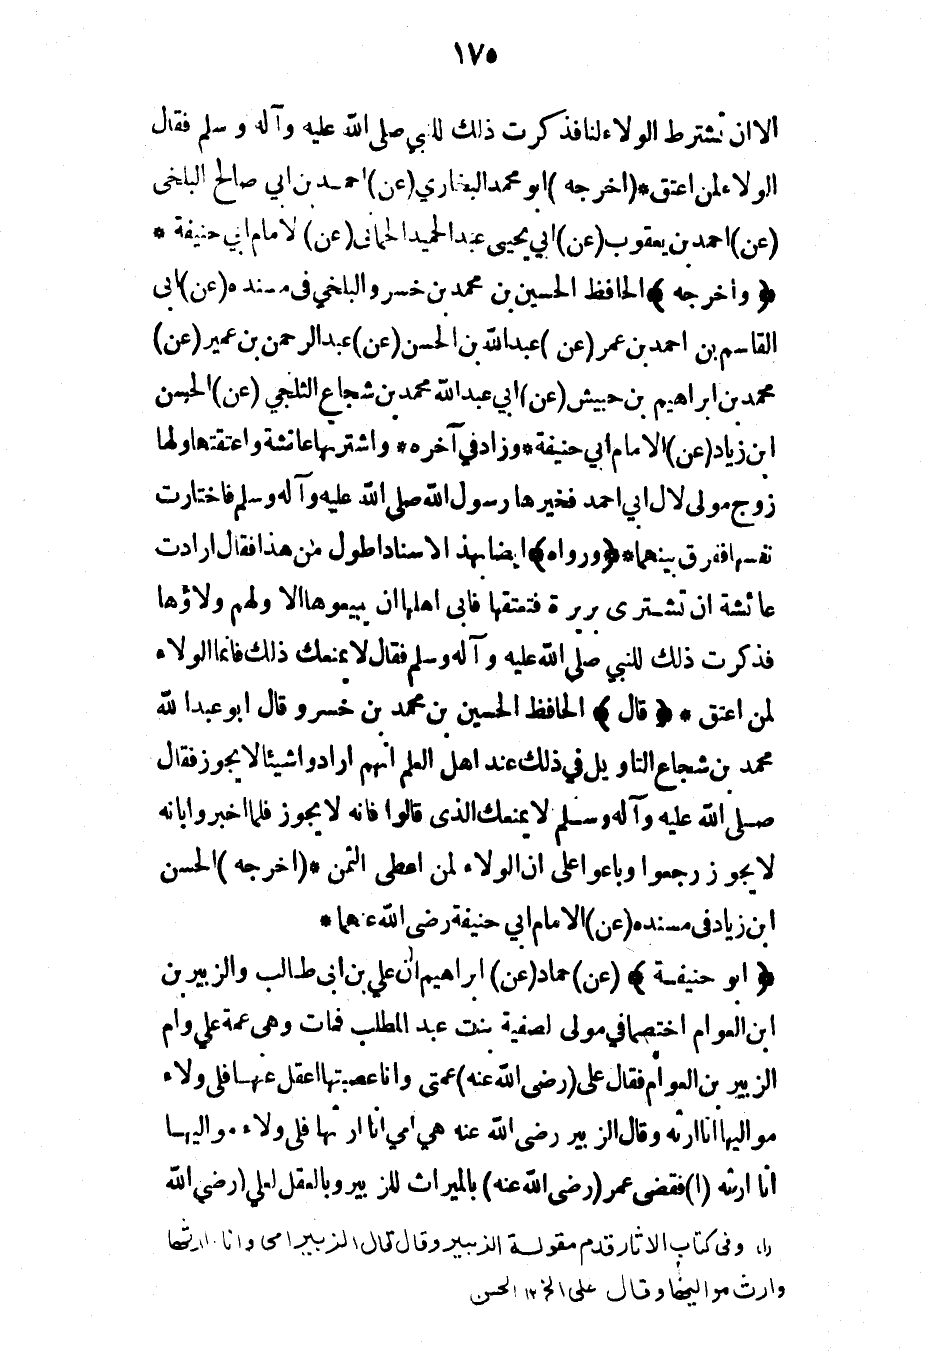 ١٧٥
الا ان تشترط الولاء لنا فذكرت ذلك للنبي صلى الله عليه وآله وسلم فقال
الولاء لمن اعتق * (اخرجه) ابو محمد البخاري (عن) احمد بن ابي صالح البلخى
(عن) احمد بن يعقوب (عن) ابي يحيى عبد الحميد الحمانى (عن) لامام ابي حنيفة *
﴿ واخرجه ﴾ الحافظ الحسين بن محمد بن خسرو البلخي فى مسنده (عن) ابى
القاسم بن احمد بن عمر (عن) عبد الله بن الحسن (عن) عبد الرحمن بن عمير (عن)
محمد بن ابراهيم بن حبيش (عن) ابي عبد الله محمد بن شجاع الثلجي (عن) الحسن
ابن زياد (عن) الامام ابي حنيفة * وزاد في آخره * واشتريها عائشة واعتقتها ولها
زوج مولى لال ابي احمد فخيرها رسول الله صلى الله عليه وآله وسلم فاختارت
نفسها ففرق بينهما * ﴿ ورواه ﴾ ايضا بهذ الاسناد اطول من هذا فقال ارادت
عائشة ان تشترى بريرة فتعتقها فابى اهلها ان يبيعوها الا ولهم ولاؤها
فذكرت ذلك للنبي صلى الله عليه وآله وسلم فقال لا يمنعك ذلك فانما الولاء
لمن اعتق * ﴿ قال ﴾ الحافظ الحسين بن محمد بن خسرو قال ابو عبدا لله
محمد بن شجاع التاويل في ذلك عند اهل العلم انهم ارادوا شيئا لا يجوز فقال
صلى الله عليه وآله وسلم لا يمنعك الذى قالوا فانه لا يجوز فلما اخبروا بانه
لا يجوز رجعوا وباعوا على ان الولاء لمن اعطى الثمن * (اخرجه) الحسن
ابن زياد فى مسنده (عن) الامام ابي حنيفة رضى الله عنهما *
﴿ ابو حنيفة ﴾ (عن) حماد (عن) ابراهيم ان علي بن ابى طالب والزبير بن
ابن العوام اختصما في مولى لصفية بنت عبد المطلب فمات وهى عمة علي وام
الزبير بن العوام فقال على (رضى الله عنه) عمتى وانا عصبتها اعقل عنها فلى ولاء
مواليها انا ارثه وقال الزبير رضى الله عنه هي امي انا ارثها فلى ولاء مواليها
انا ارثه (١) فقضى عمر (رضى الله عنه) بالميراث للزبير وبالعقل لعلي (رضي الله
(١) وفى كتاب الاثار قدم مقولة الزبير وقال قال الزبير امى وانا ارثها
وارث مواليها وقال على الخ ١٢ الحسن